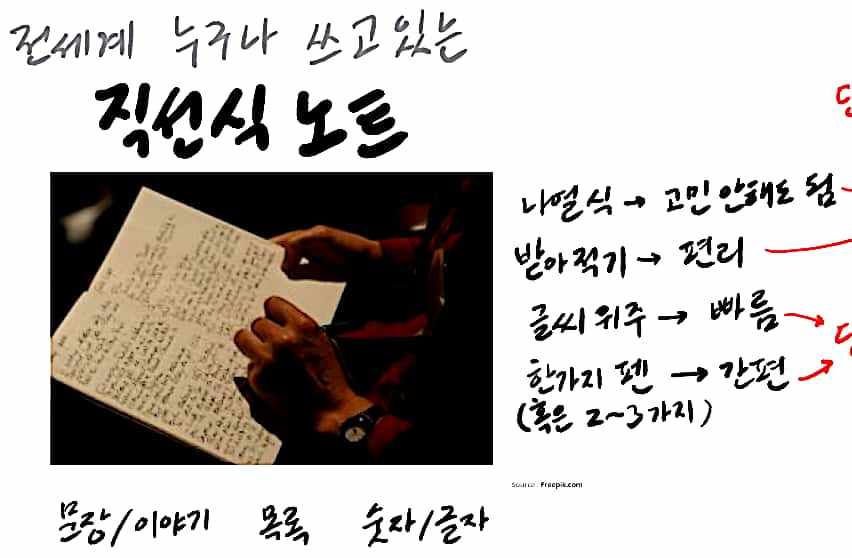 전세계 누구나 쓰고 있는
직선식 노트
나열식 → 고민 안해도 됨
받아적기 → 편리
글씨 위주 → 빠름
한가지 펜 → 간편
(혹은 2~3가지)
Source : Freepik.com
문장/이야기 목록 숫자/글자